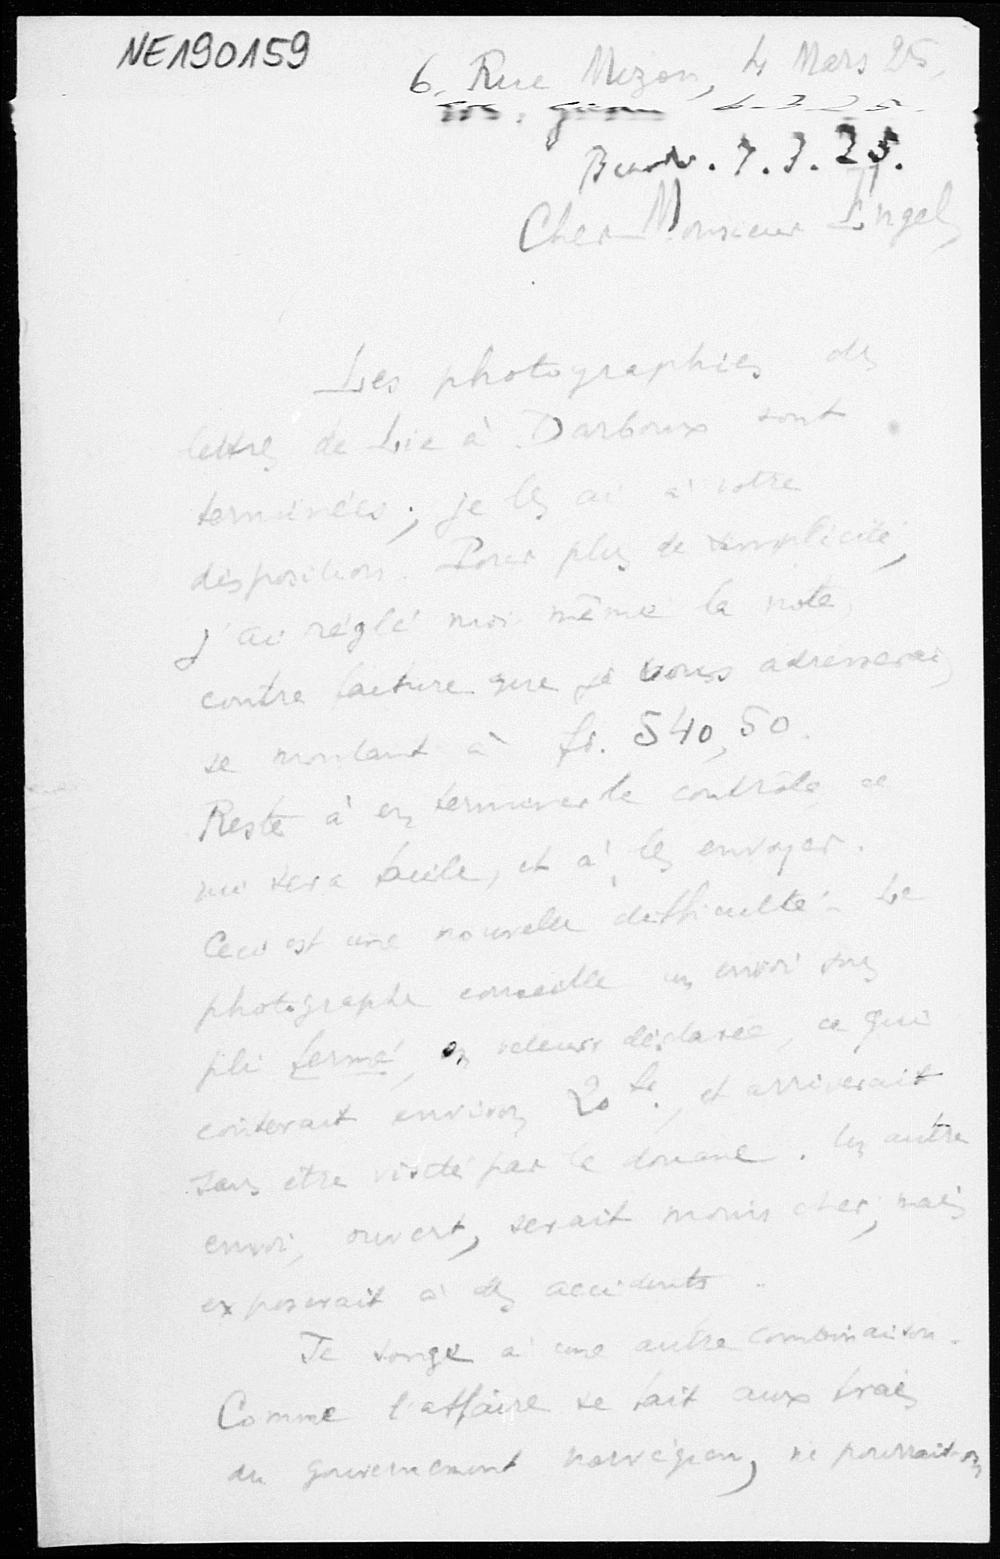 NE190159
6, Rue Mizon, 4 Mars 25,
7.3.25.
Cher Monsieur Engel,
Les photographies des
lettres de Lie à Darboux sont
terminées; je les ai à votre
disposition. Pour plus de simplicité,
j'ai réglé moi même la note,
contre facture que je vous adresserai,
se montant à fr. 540,50.
Reste à en terminer le contrôle, ce
qui sera facile, et à les envoyer.
Ceci est une nouvelle difficulté. Le
photographe conseille un envoi sous
pli fermé, en valeur déclarée, ce qui
coûterait environ 20 fr., et arriverait
sans être visité par la douane. Un autre
envoi, ouvert, serait moins cher, mais
exposerait à des accidents.
Je songe à une autre combinaison.
Comme l'affaire se fait aux frais
du gouvernement norvégien, ne pourrait-on